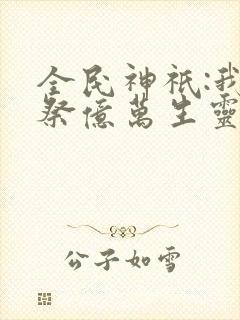 全民神祇:我
祭億萬生靈
公子如雪